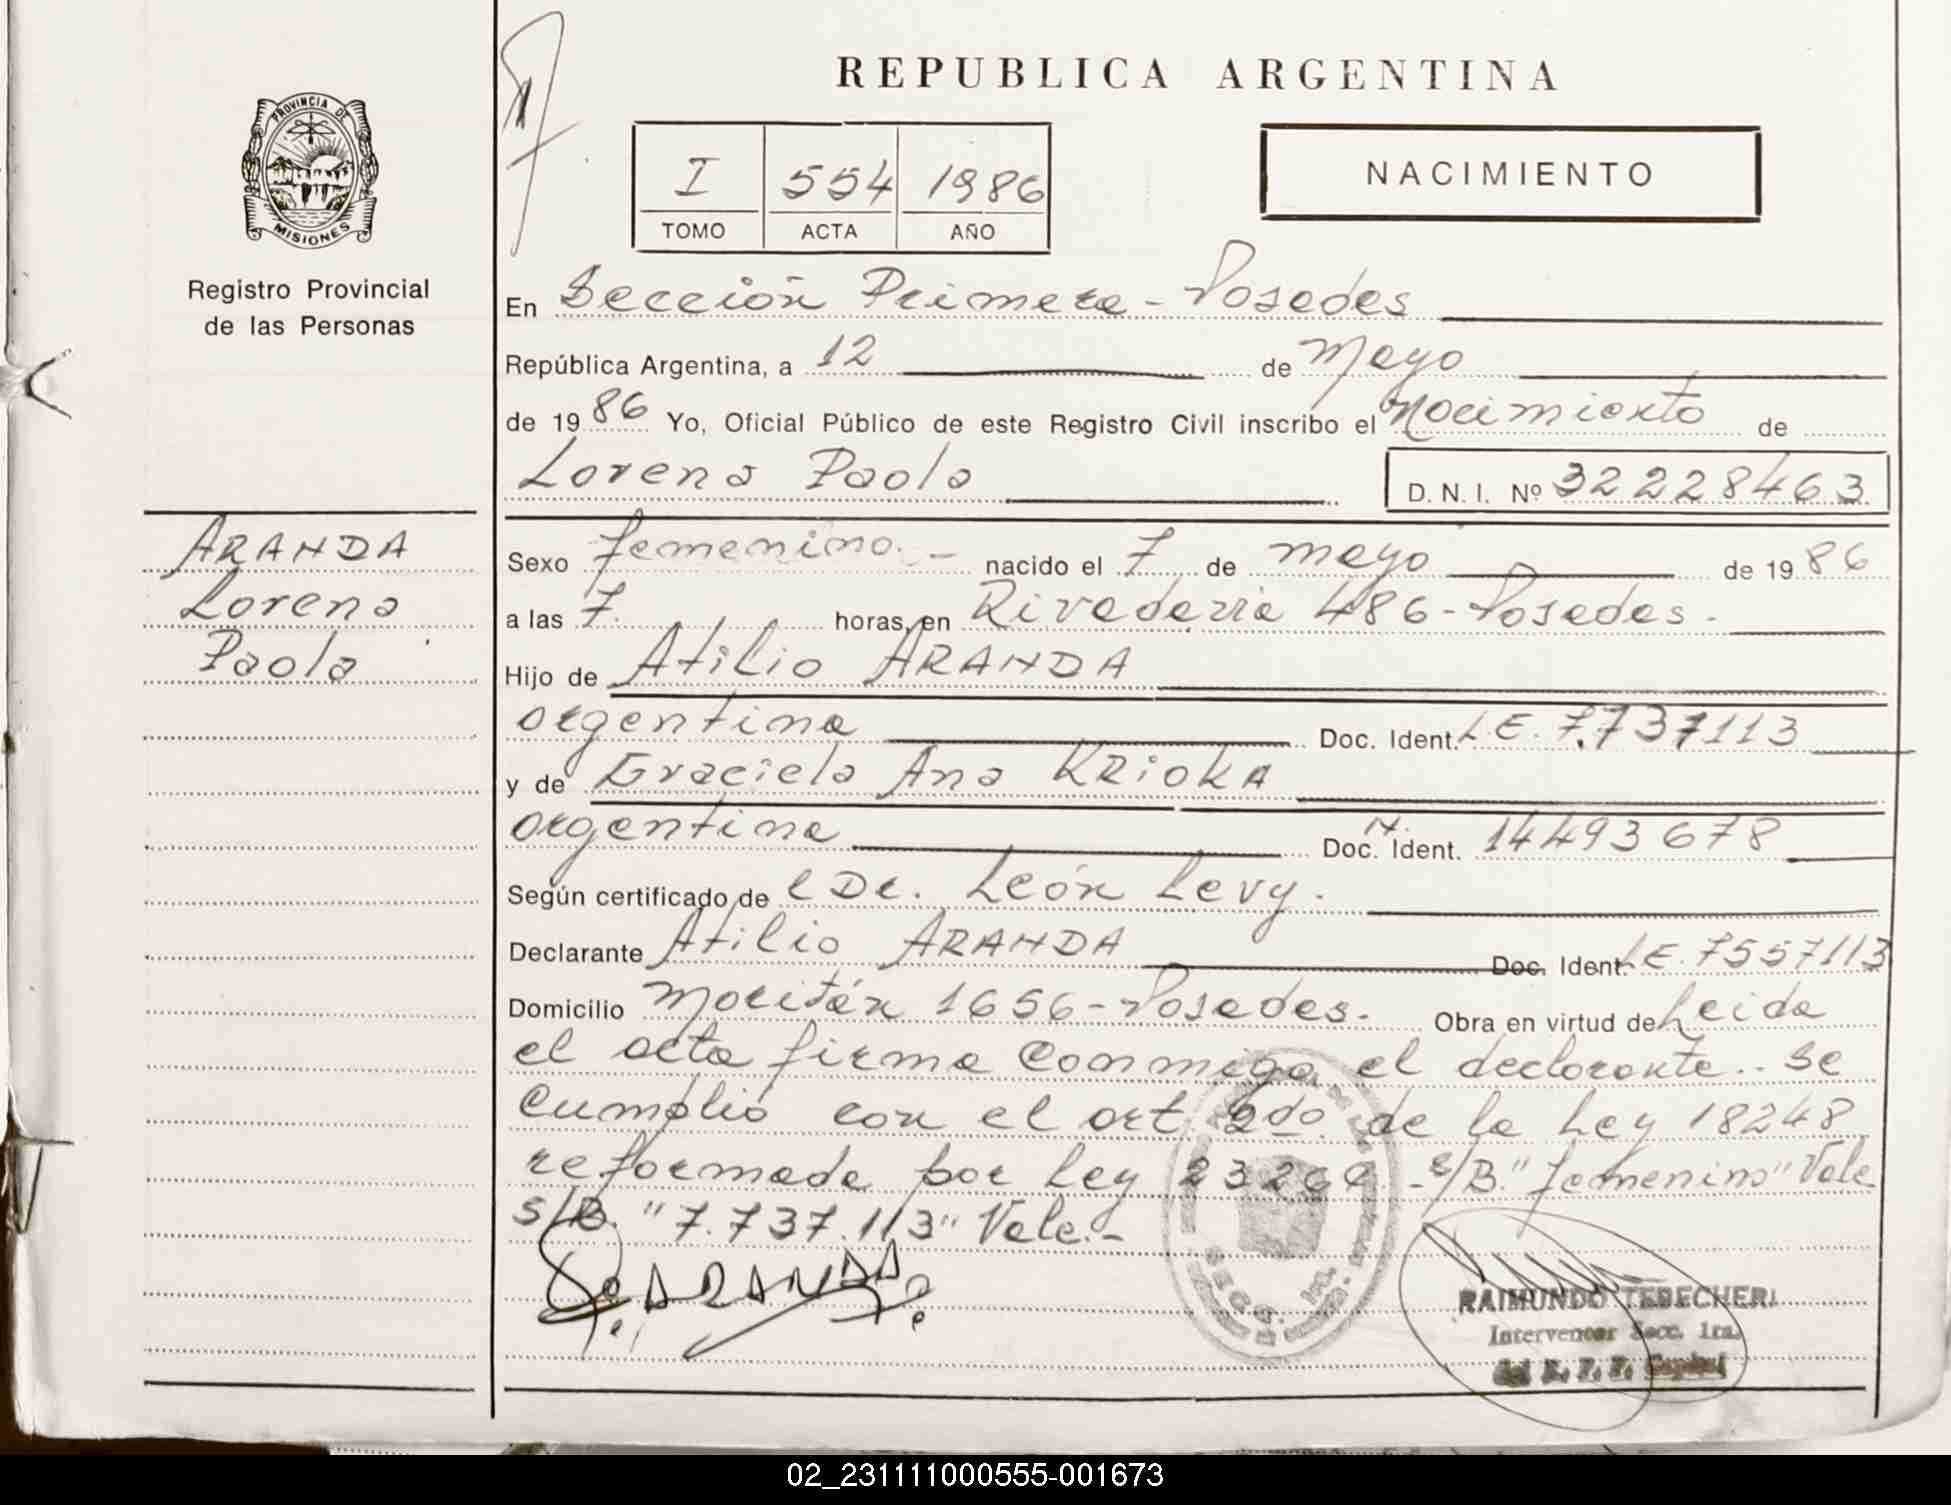 REPUBLICA ARGENTINA
PROVINCIA DE
MISIONES
Registro Provincial
de las Personas
I 554 1986
TOMO ACTA AÑO
NACIMIENTO
En Sección Primera - Posadas
República Argentina, a 12 de Mayo
de 1986 Yo, Oficial Público de este Registro Civil inscribo el Nacimiento de
Lorena Paola
D. N. I. Nº 32228463
ARANDA
Lorena
Paola
Sexo femenino. - nacido el 7 de mayo de 1986
a las 7. horas, en Rivadavia 486 - Posadas.
Hijo de Atilio ARANDA
argentina Doc. Ident. L E. 7.737113
y de Graciela Ana KRioKA
argentina Doc. Ident. 14493678
Según certificado de Dr. León Levy.
Declarante Atilio ARANDA Doc. Ident. LE. 7557113
Domicilio 1656 - Posadas. Obra en virtud de Leida
el acta firma conmigo el declarante.. Se
cumplió con el art. 2do. de la Ley 18248
reformada por Ley - S/B. "femenino" Vale
S/B. "7.737.113" Vale.-
ARANDA
SECC. 1ra.
RAIMUNDO TEBECHERI
Interventor Secc. 1ra.
del R. P. P. Capital
02_231111000555-001673